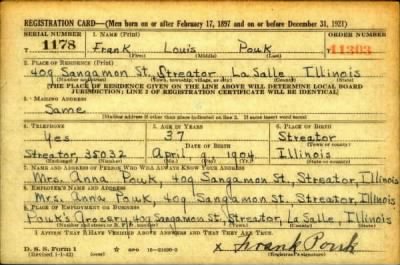 REGISTRATION CARD—(Men born on or after February 17, 1897 and on or before December 31, 1921)
SERIAL NUMBER 1. NAME (Print) ORDER NUMBER
1178 Frank Louis Pouk 11303
(First) (Middle) (Last)
2. PLACE OF RESIDENCE (Print)
409 Sangamon St. Streator, La Salle, Illinois
(Number and street) (Town, township, village, or city) (County) (State)
[THE PLACE OF RESIDENCE GIVEN ON THE LINE ABOVE WILL DETERMINE LOCAL BOARD
JURISDICTION; LINE 2 OF REGISTRATION CERTIFICATE WILL BE IDENTICAL]
3. MAILING ADDRESS
Same
[Mailing address if other than place indicated on line 2. If same insert word same]
4. TELEPHONE 5. AGE IN YEARS 6. PLACE OF BIRTH
Yes 37 Streator
DATE OF BIRTH (Town or county)
Streator, 35032 April 1904 Illinois
(Exchange) (Number) (Mo.) (Day) (Yr.) (State or country)
7. NAME AND ADDRESS OF PERSON WHO WILL ALWAYS KNOW YOUR ADDRESS
Mrs. Anna Pouk, 409 Sangamon St., Streator, Illinois
8. EMPLOYER'S NAME AND ADDRESS
Mrs. Anna Pouk, 409 Sangamon St., Streator, Illinois
9. PLACE OF EMPLOYMENT OR BUSINESS
Pouk's Grocery, 409 Sangamon St., Streator, La Salle, Illinois
(Number and street or R. F. D. number) (Town) (County) (State)
I AFFIRM THAT I HAVE VERIFIED ABOVE ANSWERS AND THAT THEY ARE TRUE.
D. S. S. Form 1 GPO x Frank Pouk
(Revised 1-1-42) (over) (Registrant's signature)